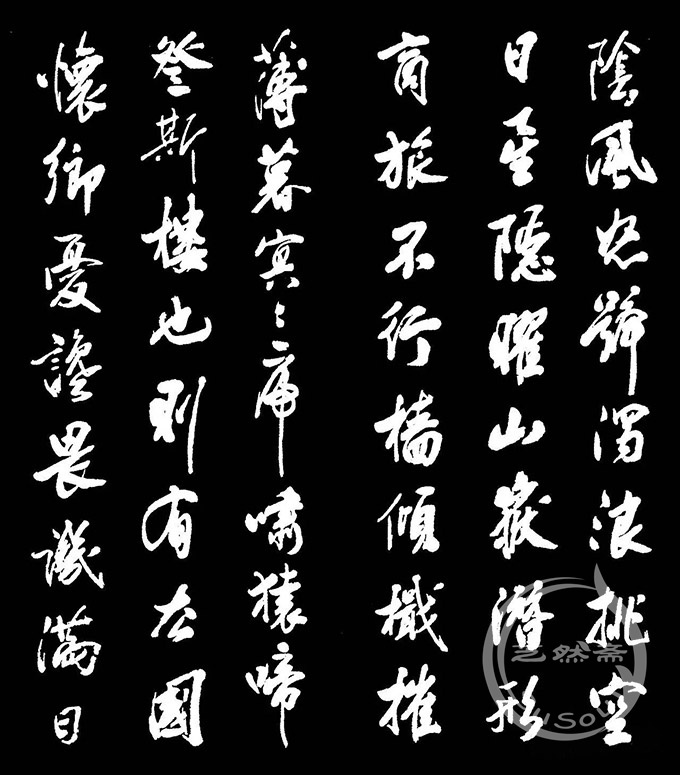 陰風怒號濁浪排空
日星隱曜山嶽潛形
商旅不行檣傾檝摧
薄暮冥〻虎嘯猿啼
登斯樓也則有去國
懷鄉憂讒畏譏滿目
艺然斋